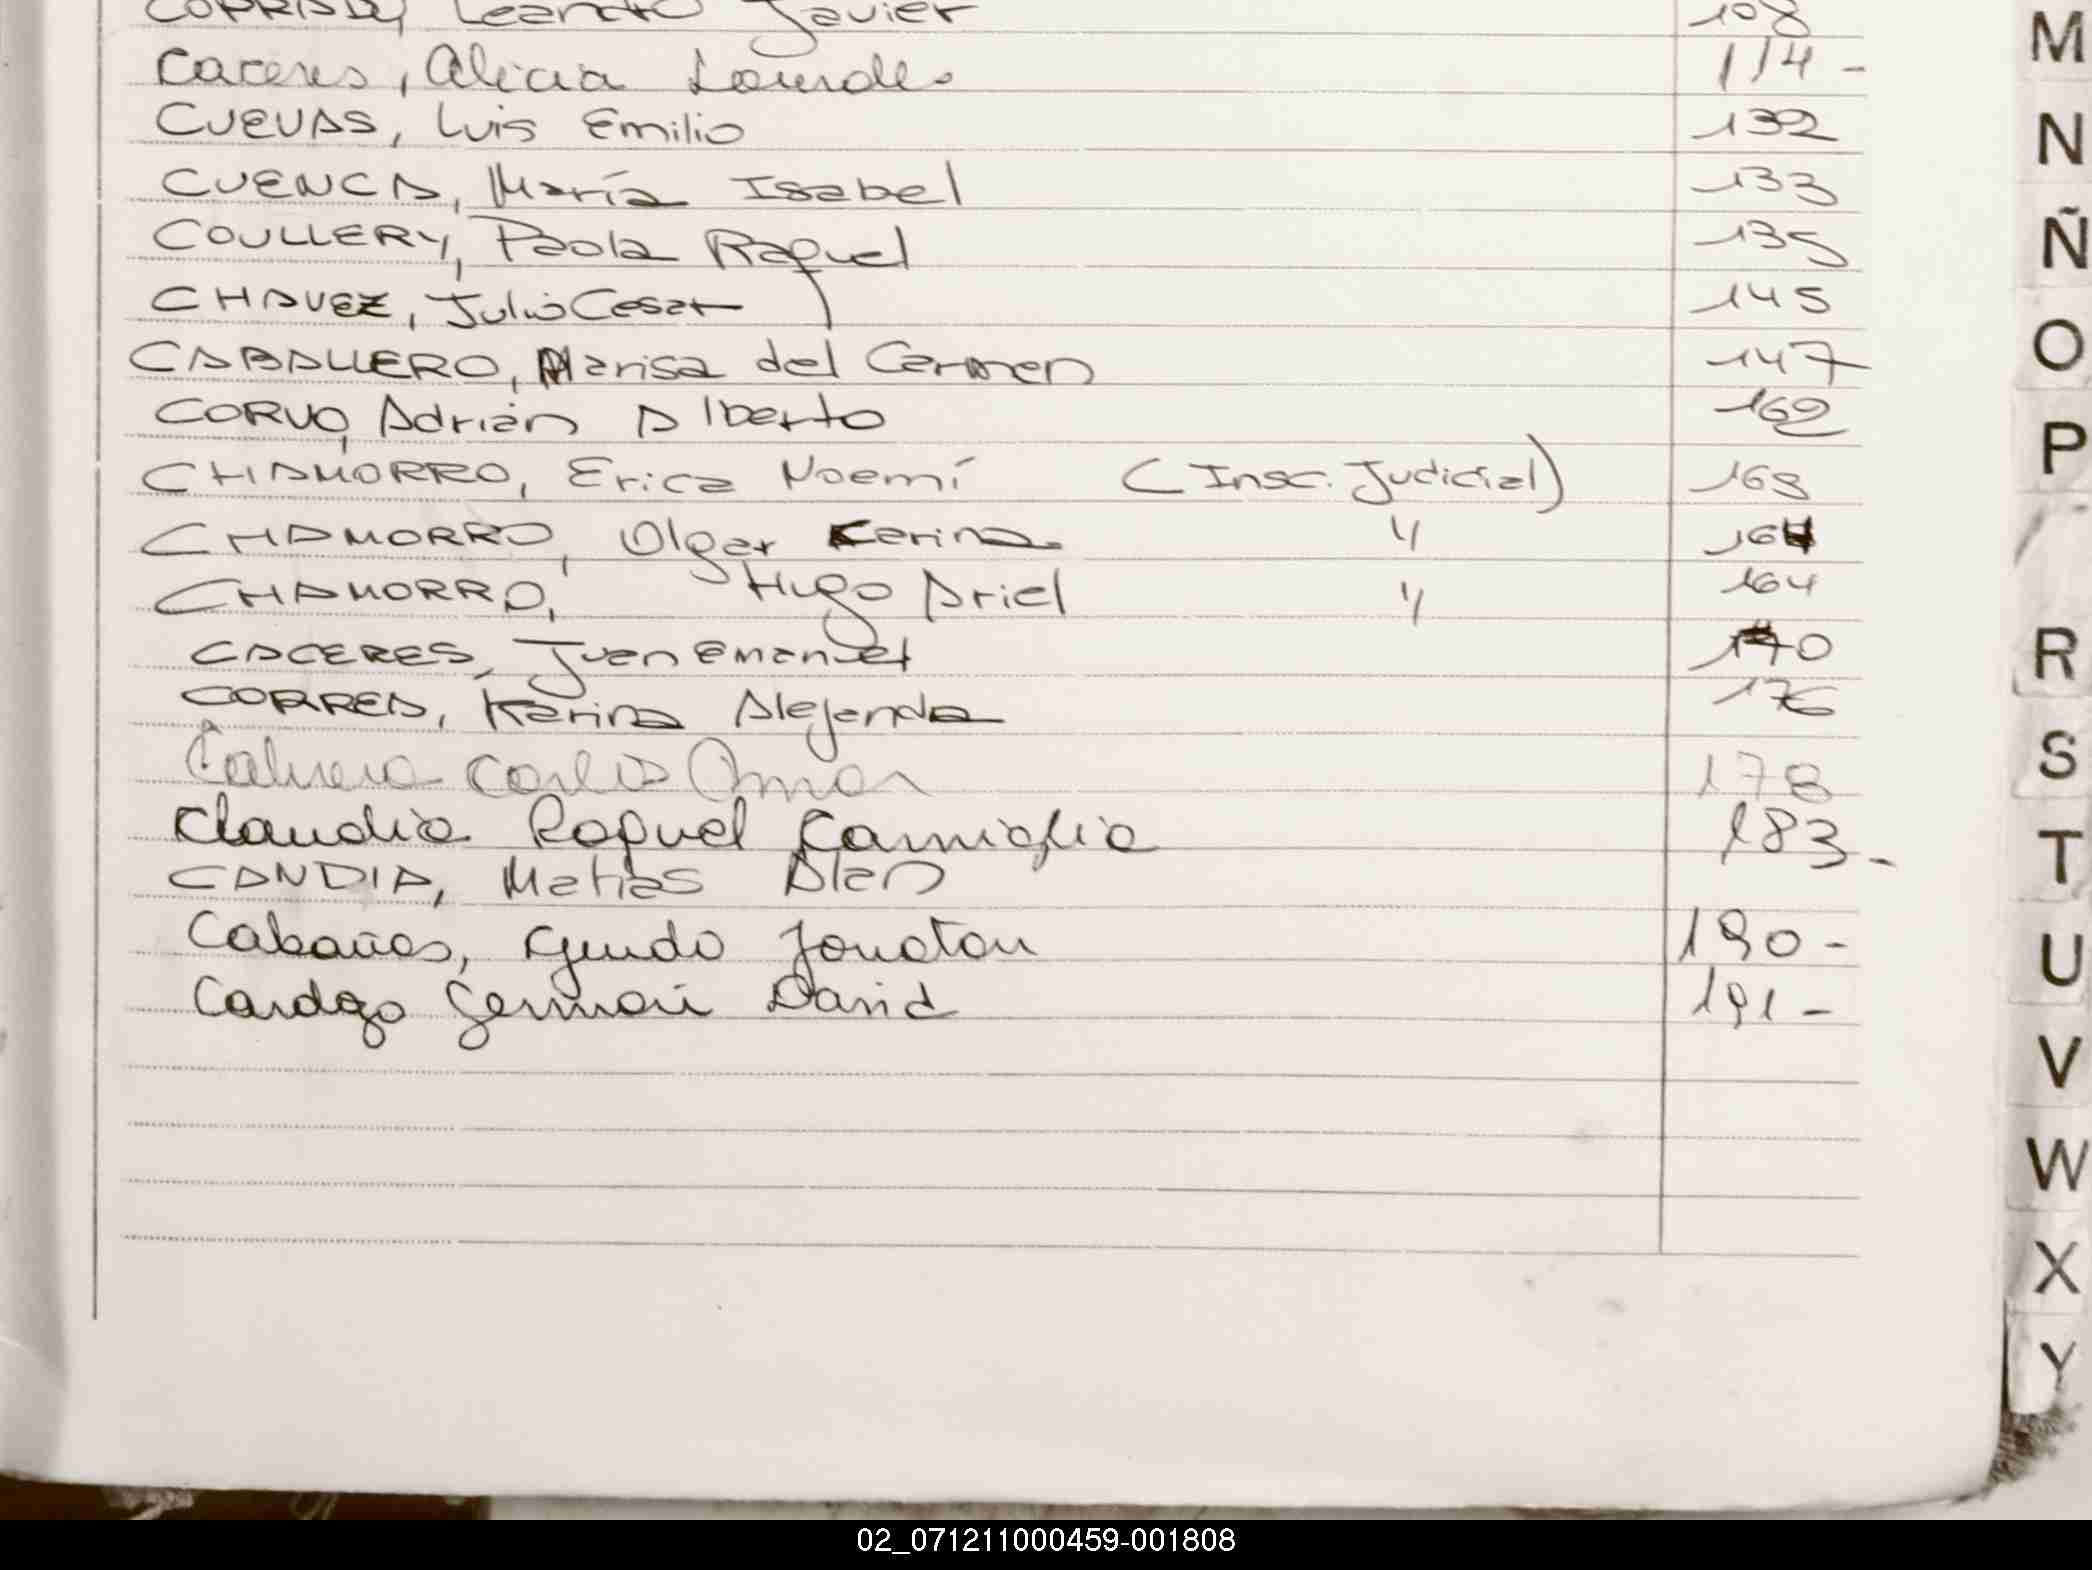 Leandro Javier 108
Caceres, Alicia Lourdes 114-
CUEVAS, Luis Emilio 132
CUENCA, María Isabel 133
COULLERY, Paola Raquel 135
CHAVEZ, Julio Cesar 145
CABALLERO, Marisa del Carmen 147
CORVO, Adrián Alberto 162
CHAMORRO, Erica Noemí (Insc. Judicial) 163
CHAMORRO, Olga Karina " 164
CHAMORRO, Hugo Ariel " 164
CACERES, Juan Emanuel 170
CORREA, Karina Alejanda 176
Cabrera Carlos Omar 178
Claudia Raquel 183-
CANDIA, Matias Alan
Cabañas, Guido Jonatan 190-
Cardozo Germán David 191-
M
N
Ñ
O
P
R
S
T
U
V
W
X
Y
02_071211000459-001808